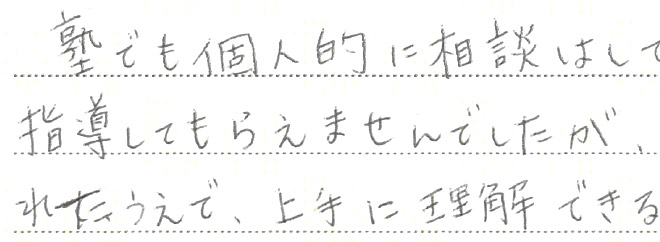 塾でも個人的に相談はして
指導してもらえませんでしたが、
れたうえで、上手に理解できる